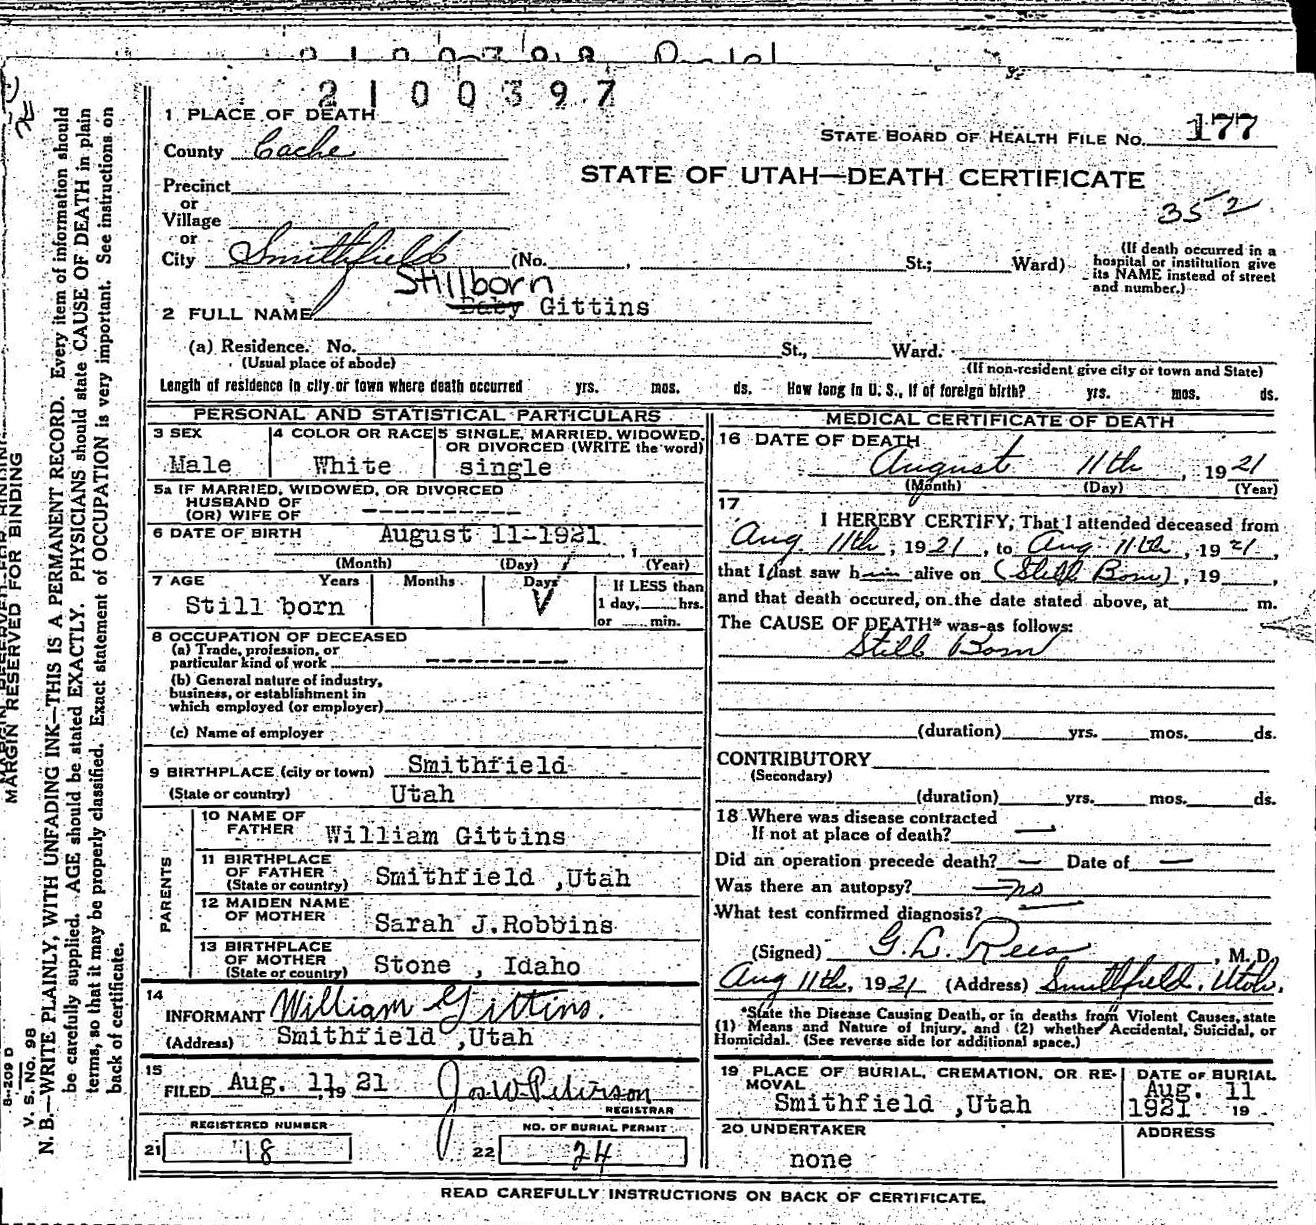 2100397
1 PLACE OF DEATH
STATE BOARD OF HEALTH FILE NO. 177
County Cache
STATE OF UTAH—DEATH CERTIFICATE
Precinct
or
352
Village
or
City Smithfield (No. , St.; Ward)
(If death occurred in a hospital or institution give its NAME instead of street and number.)
Stillborn
2 FULL NAME Baby Gittins
(a) Residence. No. St., Ward.
(Usual place of abode) (If non-resident give city or town and State)
Length of residence in city or town where death occurred yrs. mos. ds. How long in U. S., if of foreign birth? yrs. mos. ds.
PERSONAL AND STATISTICAL PARTICULARS
3 SEX Male
4 COLOR OR RACE White
5 SINGLE, MARRIED, WIDOWED, OR DIVORCED (WRITE the word) single
5a IF MARRIED, WIDOWED, OR DIVORCED
HUSBAND OF
(OR) WIFE OF ----------
6 DATE OF BIRTH August 11-1921
(Month) (Day) (Year)
7 AGE Years Months Days If LESS than
Still born 1 day, hrs.
or min.
8 OCCUPATION OF DECEASED
(a) Trade, profession, or
particular kind of work ----------
(b) General nature of industry,
business, or establishment in
which employed (or employer)
(c) Name of employer
9 BIRTHPLACE (city or town) Smithfield
(State or country) Utah
PARENTS
10 NAME OF FATHER William Gittins
11 BIRTHPLACE OF FATHER (State or country) Smithfield ,Utah
12 MAIDEN NAME OF MOTHER Sarah J.Robbins
13 BIRTHPLACE OF MOTHER (State or country) Stone , Idaho
14
INFORMANT William Gittins.
(Address) Smithfield ,Utah
15
FILED Aug. 11, 19 21 Jos. W. Peterson
REGISTRAR
REGISTERED NUMBER
21 18
NO. OF BURIAL PERMIT
22 24
MEDICAL CERTIFICATE OF DEATH
16 DATE OF DEATH
August 11th , 19 21
(Month) (Day) (Year)
17
I HEREBY CERTIFY, That I attended deceased from
Aug 11th, 19 21, to Aug 11th, 19 21,
that I last saw him alive on (Still Born), 19 ,
and that death occured, on the date stated above, at m.
The CAUSE OF DEATH* was as follows:
Still Born
(duration) yrs. mos. ds.
CONTRIBUTORY
(Secondary)
(duration) yrs. mos. ds.
18 Where was disease contracted
If not at place of death? —
Did an operation precede death? — Date of —
Was there an autopsy? no
What test confirmed diagnosis? —
(Signed) G. L. Rees , M. D.
Aug 11th, 1921 (Address) Smithfield, Utah.
*State the Disease Causing Death, or in deaths from Violent Causes, state
(1) Means and Nature of Injury, and (2) whether Accidental, Suicidal, or
Homicidal. (See reverse side for additional space.)
19 PLACE OF BURIAL, CREMATION, OR REMOVAL
Smithfield ,Utah
DATE OF BURIAL
Aug. 11
1921 19
20 UNDERTAKER
none
ADDRESS
READ CAREFULLY INSTRUCTIONS ON BACK OF CERTIFICATE.
MARGIN RESERVED FOR BINDING
N. B.—WRITE PLAINLY, WITH UNFADING INK—THIS IS A PERMANENT RECORD. Every item of information should
be carefully supplied. AGE should be stated EXACTLY. PHYSICIANS should state CAUSE OF DEATH in plain
terms, so that it may be properly classified. Exact statement of OCCUPATION is very important. See instructions on
back of certificate.
V. S. No. 98
B-209 D